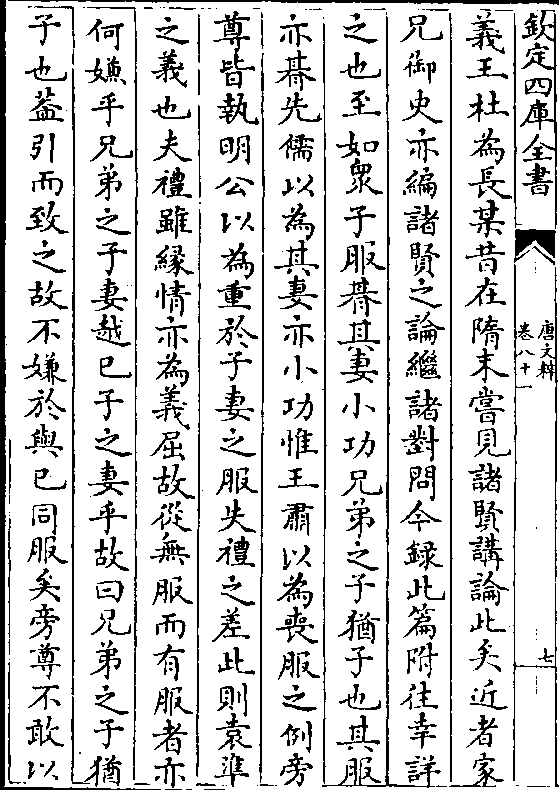 欽定四庫全書
唐文粹
卷八十
七
義王杜為長某昔在隋末嘗見諸賢講論此矣近者家
兄御史亦編諸賢之論繼諸對問今録此篇附往幸詳
之也至如衆子服朞其妻小功兄弟之子猶子也其服
亦朞先儒以為其妻亦小功惟王肅以為喪服之例旁
尊皆執明公以為重於子妻之服失禮之差此則袁準
之義也夫禮雖縁情亦為義屈故從無服而有服者亦
何嫌乎兄弟之子妻越已子之妻乎故曰兄弟之子猶
子也葢引而致之故不嫌於與已同服矣旁尊不敢以